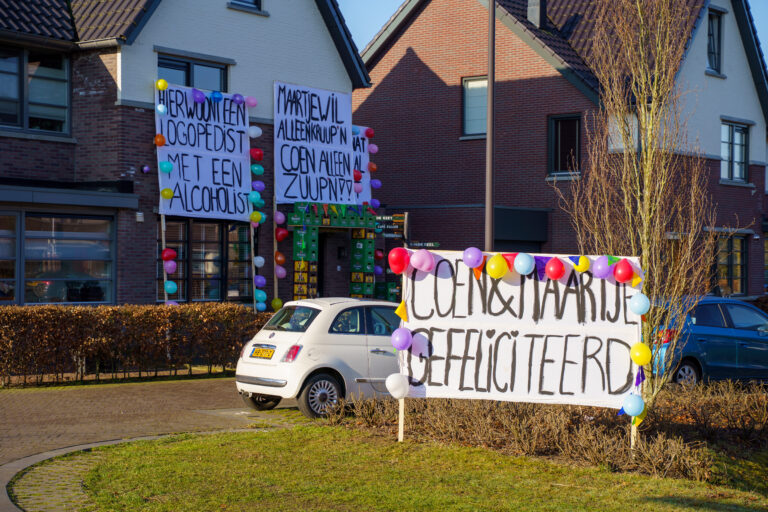 HIER WOONT EEN
LOGOPEDIST
MET EEN
ALCOHOLIST
MAARTJE WIL
ALLEEN KRUUP'N
COEN ALLEEN
ZUUPN??
COEN & MAARTJE
GEFELICITEERD